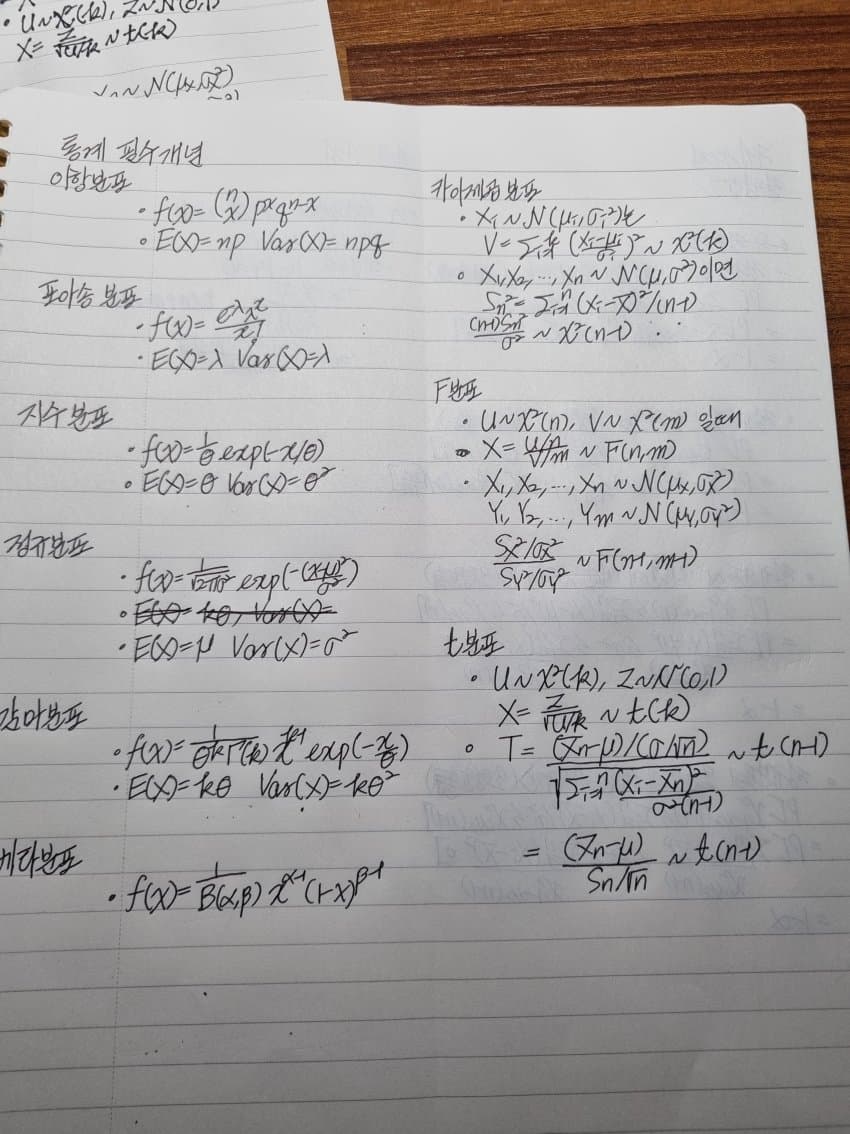 · U~χ²(k), Z~N(0,1)
X= Z/√(U/k) ~ t(k)
~ N(μx,σx²)
통계 필수개념
이항분포
· f(x)= (n x) p^x q^(n-x)
· E(X)=np Var(X)=npq
포아송 분포
· f(x)= e^λ λ^x / x!
· E(X)=λ Var(X)=λ
지수분포
· f(x)= 1/θ exp(-x/θ)
· E(X)=θ Var(X)=θ²
정규분포
· f(x)= 1/√(2πσ²) exp(-(x-μ)²/σ²)
· E(X)= kθ, Var(X)=
· E(X)=μ Var(X)=σ²
감마분포
· f(x)= 1/(θ^k Γ(k)) x^(k-1) exp(-x/θ)
· E(X)=kθ Var(X)=kθ²
베타분포
· f(x)= 1/B(α,β) x^(α-1) (1-x)^(β-1)
카이제곱분포
· Xi ~ N(μi,σi²)는
V= Σ_(i=1)^k ((Xi-μi)/σi)² ~ χ²(k)
· X1,X2,...,Xn ~ N(μ,σ²)이면
Sn²= Σ_(i=1)^n (Xi-X̄)²/(n-1)
(n-1)Sn²/σ² ~ χ²(n-1)
F분포
· U~χ²(n), V~χ²(m) 일때
· X= (U/n)/(V/m) ~ F(n,m)
· X1, X2, ..., Xn ~ N(μx,σx²)
Y1, Y2, ..., Ym ~ N(μy,σy²)
(Sx²/σx²)/(Sy²/σy²) ~ F(n-1, m-1)
t분포
· U~χ²(k), Z~N(0,1)
X= Z/√(U/k) ~ t(k)
· T= ((X̄n-μ)/(σ/√n)) / √(Σ_(i=1)^n (Xi-X̄n)²/(σ²(n-1))) ~ t(n-1)
= (X̄n-μ)/(Sn/√n) ~ t(n-1)